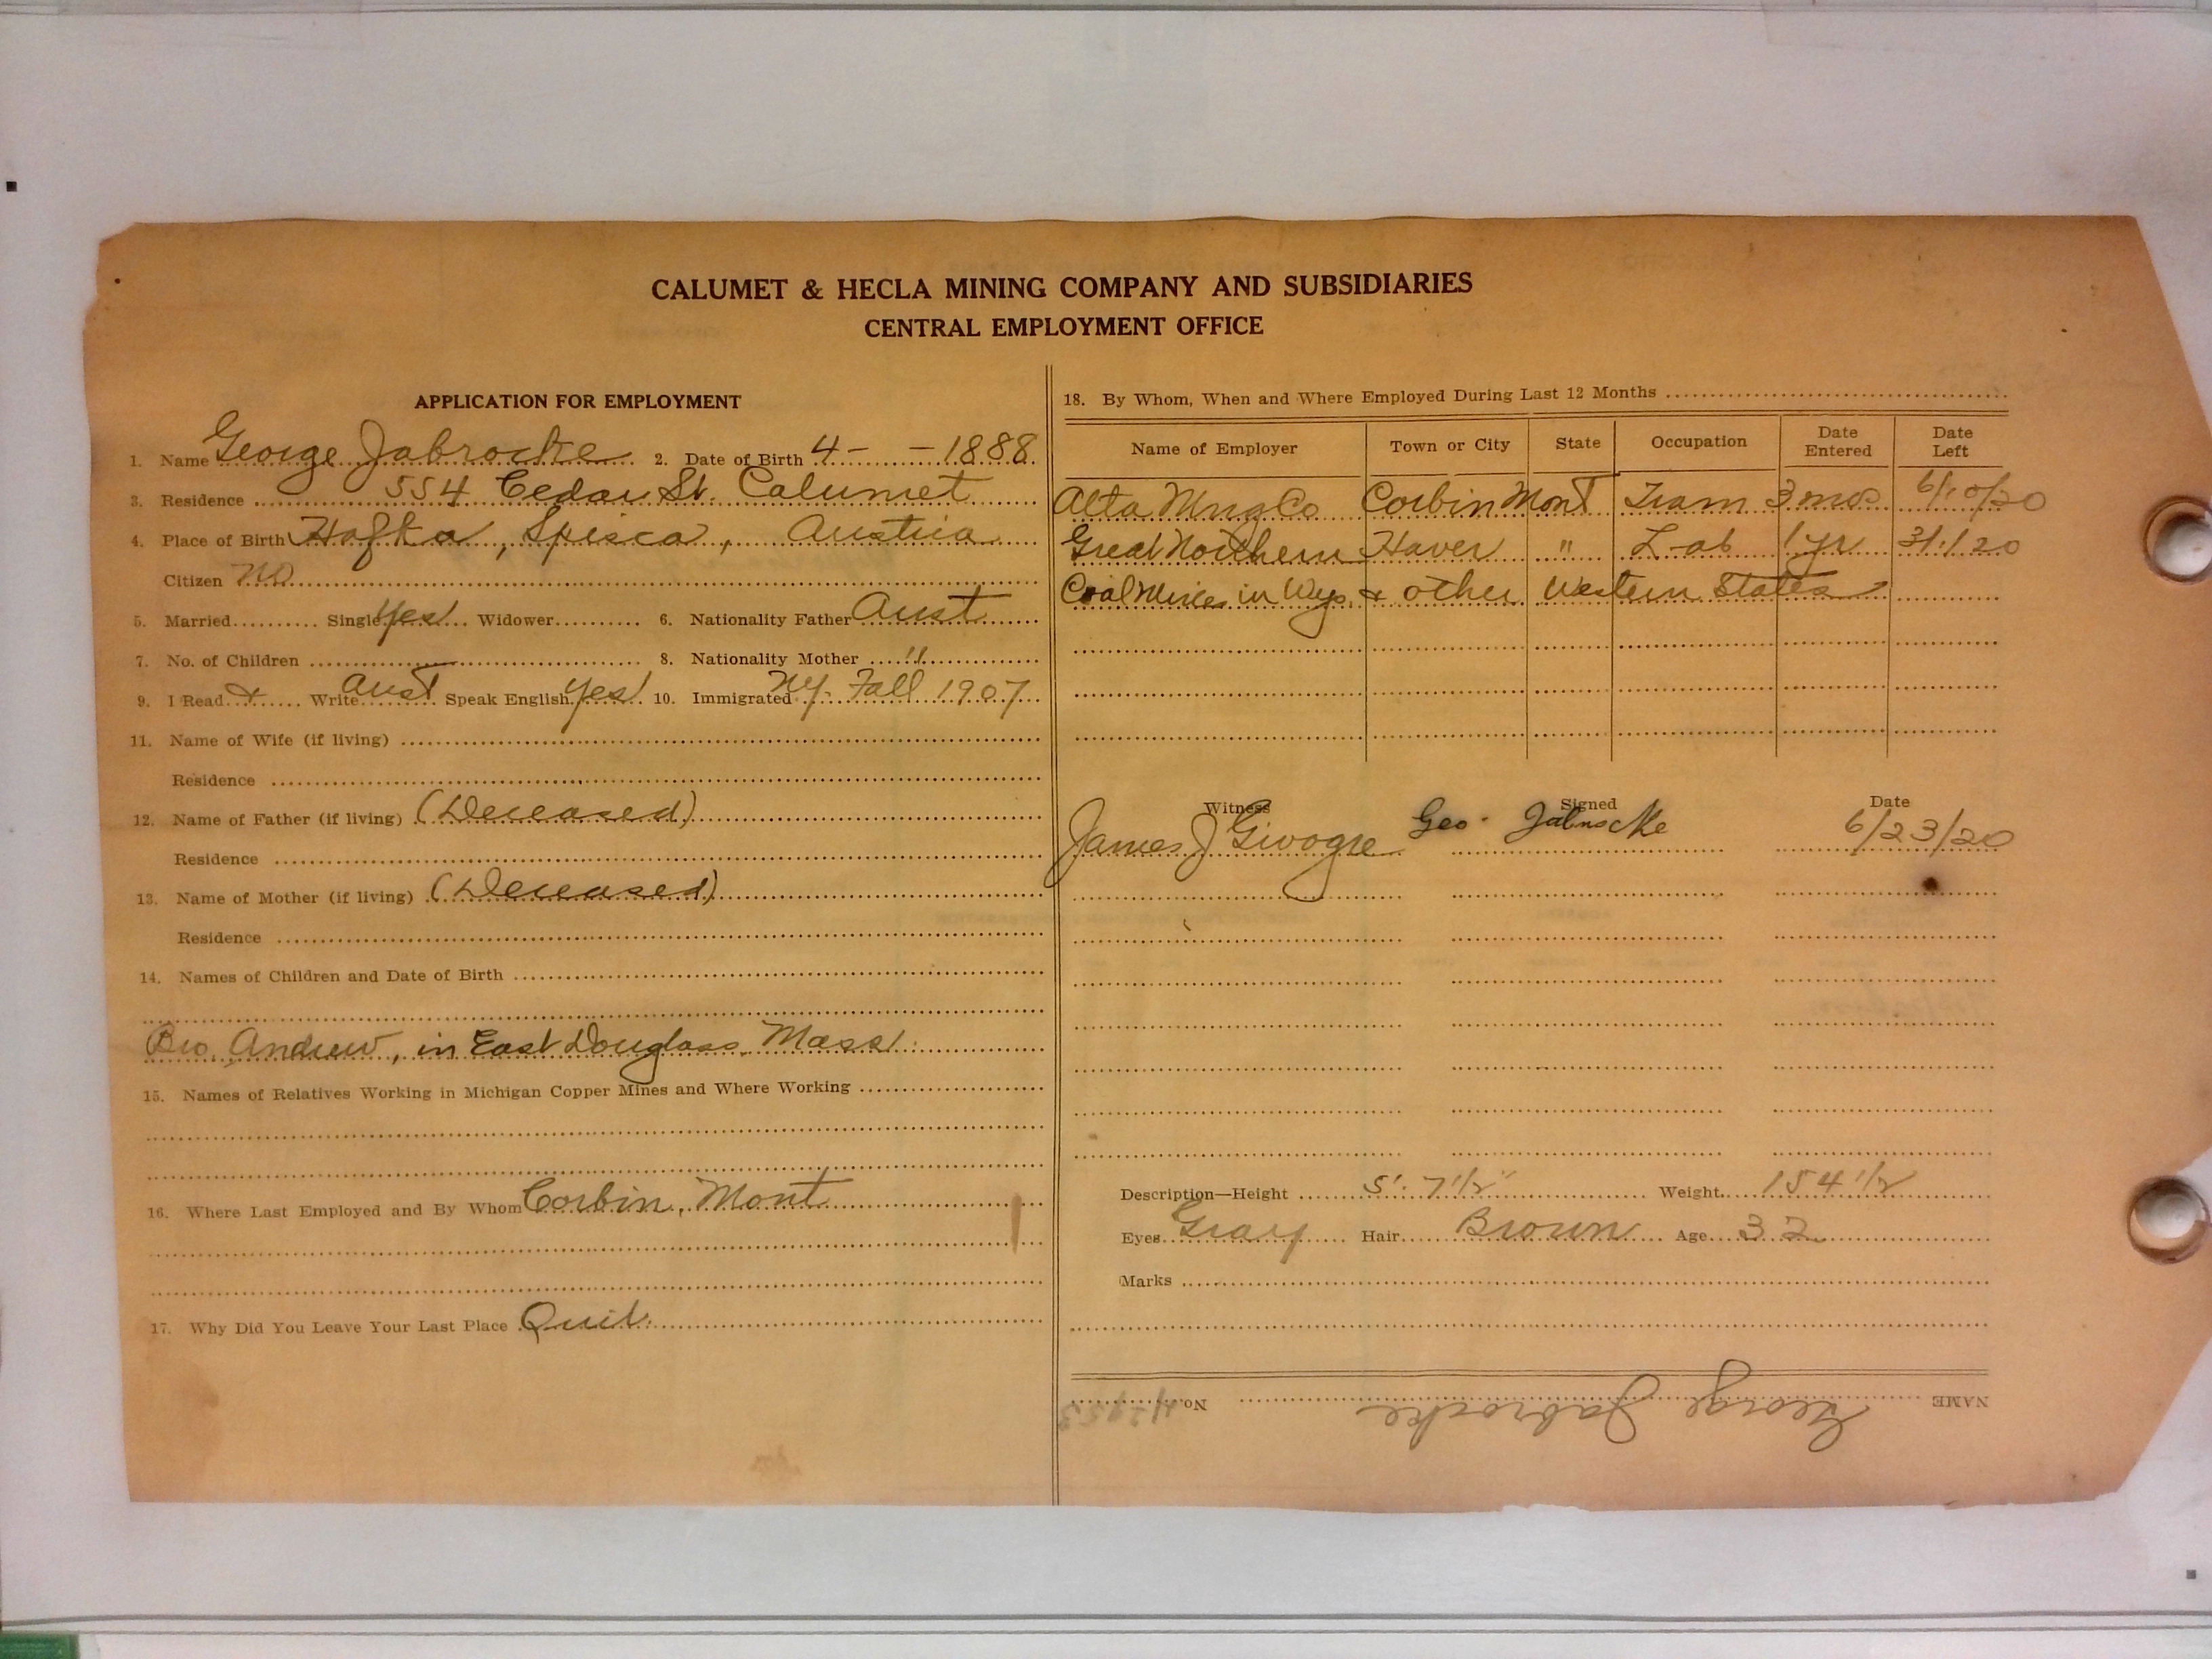 CALUMET & HECLA MINING COMPANY AND SUBSIDIARIES
CENTRAL EMPLOYMENT OFFICE
APPLICATION FOR EMPLOYMENT
1. Name George Jabrocke 2. Date of Birth 4 - - 1888
3. Residence 554 Cedar St. Calumet
4. Place of Birth Hafka, Spisca, Austria
Citizen no
5. Married Single yes Widower 6. Nationality Father Aust
7. No. of Children — 8. Nationality Mother "
9. I Read & Write Aust Speak English yes 10. Immigrated NY. Fall 1907
11. Name of Wife (if living)
Residence
12. Name of Father (if living) (Deceased)
Residence
13. Name of Mother (if living) (Deceased)
Residence
14. Names of Children and Date of Birth
Bro. Andrew, in East Douglass Mass.
15. Names of Relatives Working in Michigan Copper Mines and Where Working
16. Where Last Employed and By Whom Corbin, Mont
17. Why Did You Leave Your Last Place Quit.
18. By Whom, When and Where Employed During Last 12 Months
Name of Employer Town or City State Occupation Date Entered Date Left
Alta Mng Co Corbin Mont Tram 3 mos 6/10/20
Great Northern Haver " Lab 1 yr 3/1/20
Coal Mines in Wyo. & other Western States
Witness Signed Date
James J Geo. Jabrocke 6/23/20
Description—Height 5' 7 1/2" Weight 154 1/2
Eyes Gray Hair Brown Age 32
Marks
NAME George Jabrocke No.